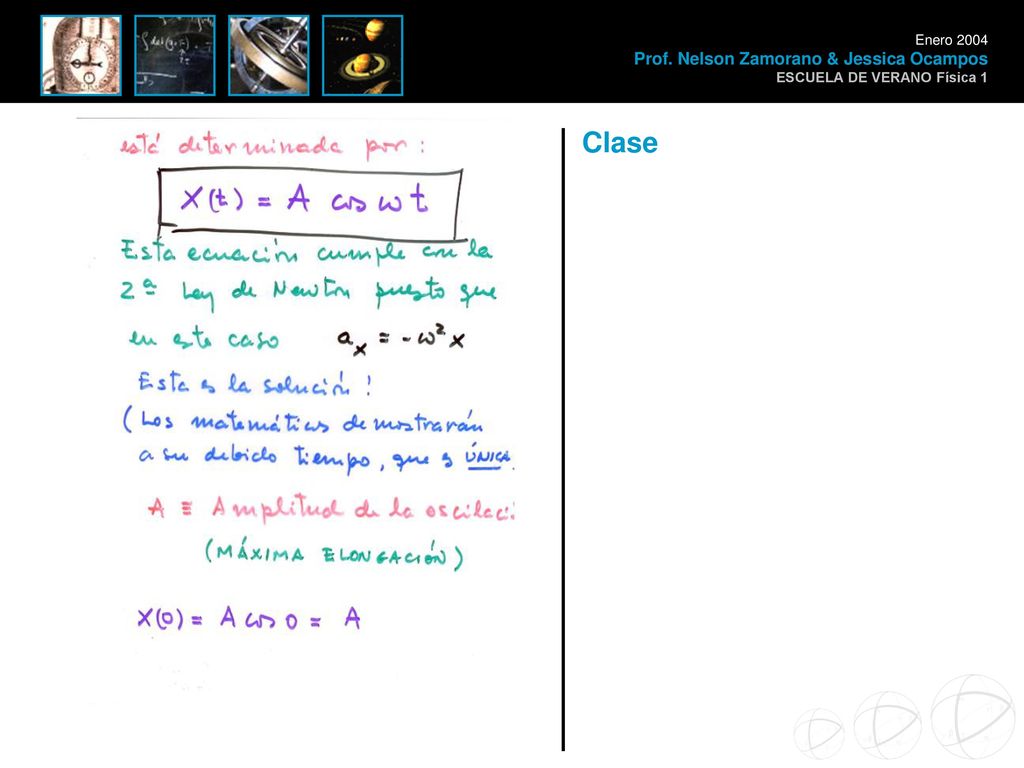 Enero 2004
Prof. Nelson Zamorano & Jessica Ocampos
ESCUELA DE VERANO Física 1
está determinada por:
X(t) = A cos ω t
Esta ecuación cumple con la
2ª Ley de Newton puesto que
en este caso aₓ = -ω² x
Esta es la solución!
(Los matemáticos demostrarán
a su debido tiempo, que es ÚNICA.
A ≡ Amplitud de la oscilaci
(MÁXIMA ELONGACIÓN)
X(0) = A cos 0 = A
Clase